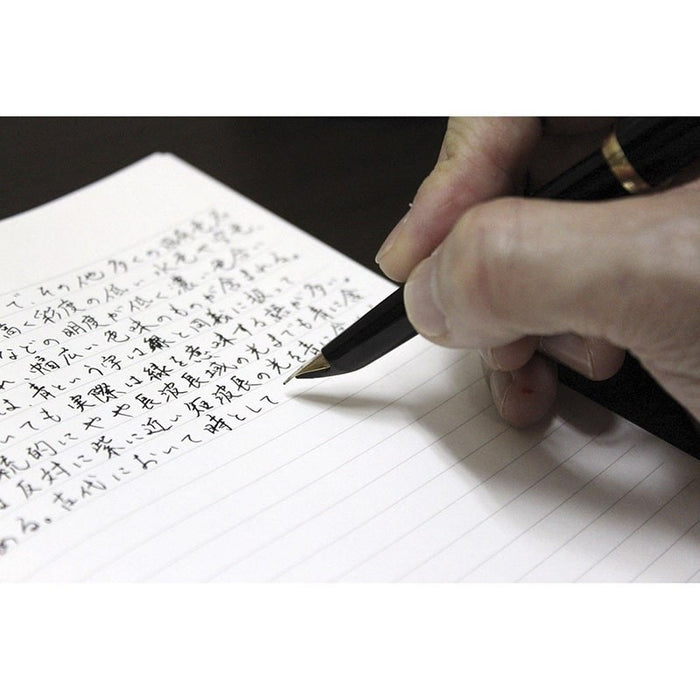 で、その他多くの
高く彩度の低い水色や空色、
などの明度が低く濃い色合い
幅広い色味のものが含まれる。
は青という字は緑と同義に扱って
いても実際は緑を意味する語が多い。
統的にやや長波長域の光までも青に含
反対に紫に近い短波長の光を青
める。古代において時として